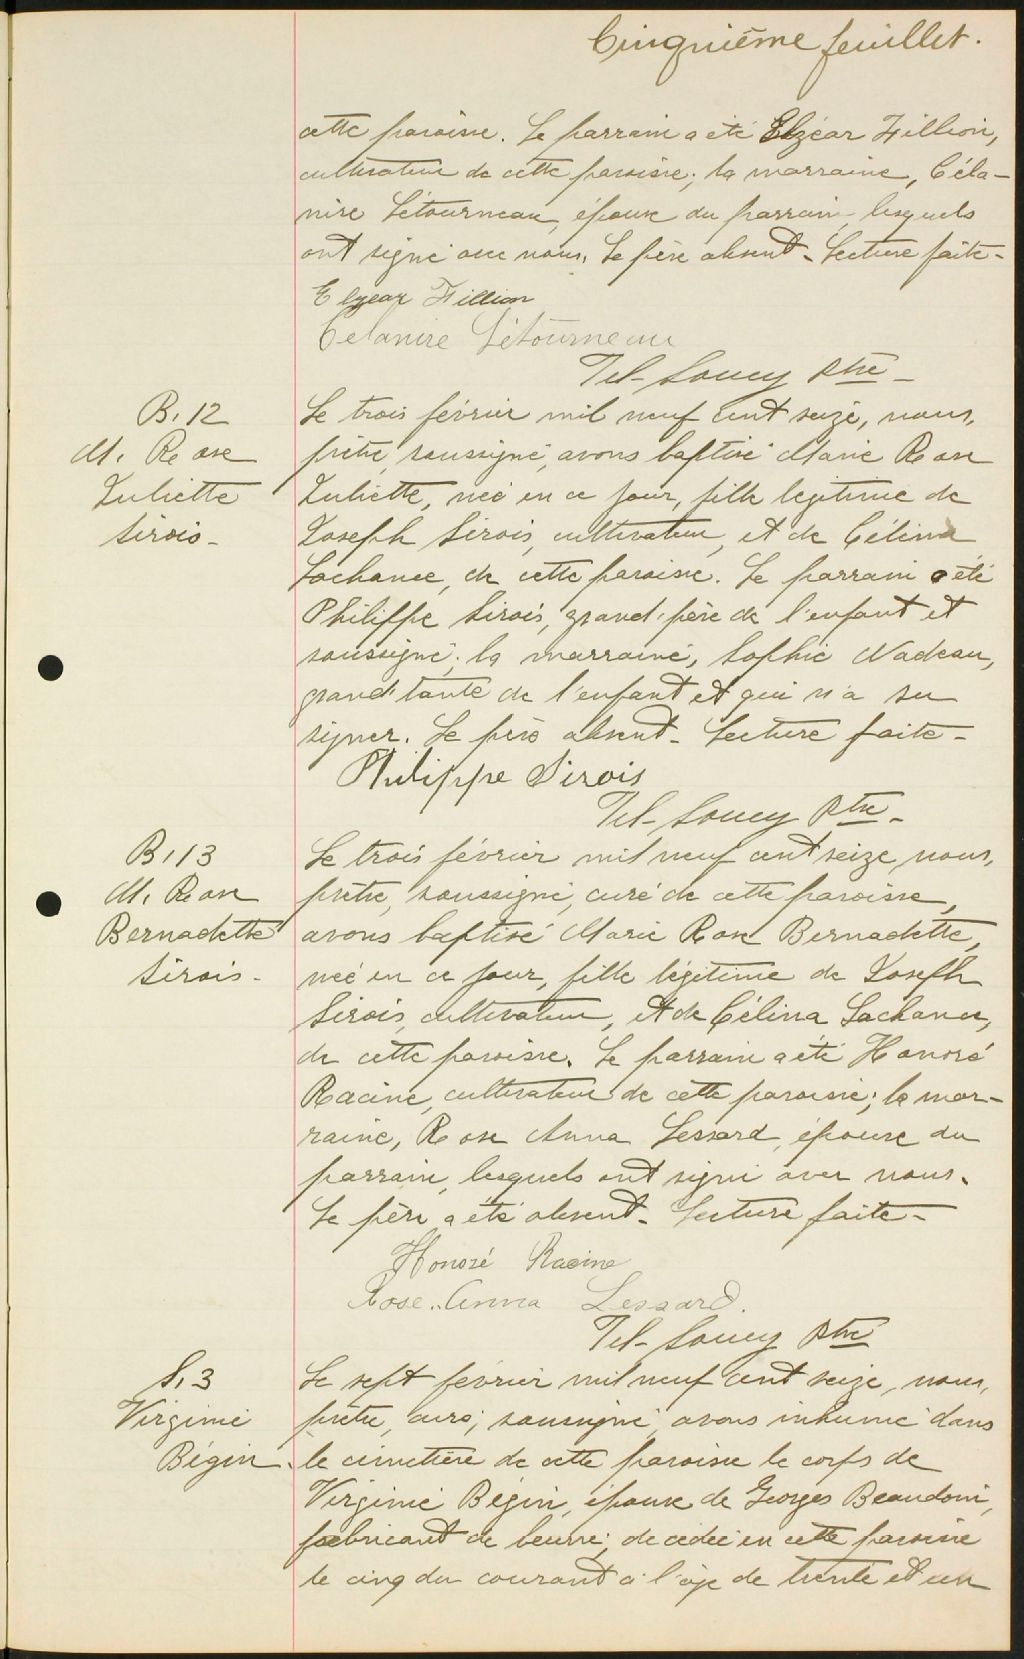 Cinquième feuillet.
cette paroisse. Le parrain a été Elzéar Fillion,
cultivateur de cette paroisse; la marraine, Céla-
nire Létourneau, épouse du parrain, lesquels
ont signé avec nous. Le père absent. Lecture faite.
Elzear Fillion
Celanire Létourneau
Tél. Soucy Ptre
B. 12
M. Rose
Juliette
Sirois
Le trois février mil neuf cent seize, nous,
prêtre, soussigné, avons baptisé Marie Rose
Juliette, née en ce jour, fille légitime de
Joseph Sirois, cultivateur, et de Célina
Lachance, de cette paroisse. Le parrain a été
Philippe Sirois, grand'père de l'enfant et
soussigné; la marraine, Sophie Nadeau,
grand'tante de l'enfant et qui n'a su
signer. Le père absent. Lecture faite.
Philippe Sirois
Tél. Soucy Ptre
B. 13
M. Rose
Bernadette
Sirois
Le trois février mil neuf cent seize, nous,
prêtre, soussigné, curé de cette paroisse,
avons baptisé Marie Rose Bernadette,
née en ce jour, fille légitime de Joseph
Sirois, cultivateur, et de Célina Lachance,
de cette paroisse. Le parrain a été Honoré
Racine, cultivateur de cette paroisse; la mar-
raine, Rose Anna Lessard, épouse du
parrain, lesquels ont signé avec nous.
Le père a été absent. Lecture faite.
Honoré Racine
Rose-Anna Lessard.
Tél. Soucy Ptre
S. 3
Virginie
Bégin.
Le sept février mil neuf cent seize, nous,
prêtre, curé, soussigné, avons inhumé dans
le cimetière de cette paroisse le corps de
Virginie Bégin, épouse de Georges Beaudoin,
fabricant de beurre, décédée en cette paroisse
le cinq du courant à l'âge de trente et un